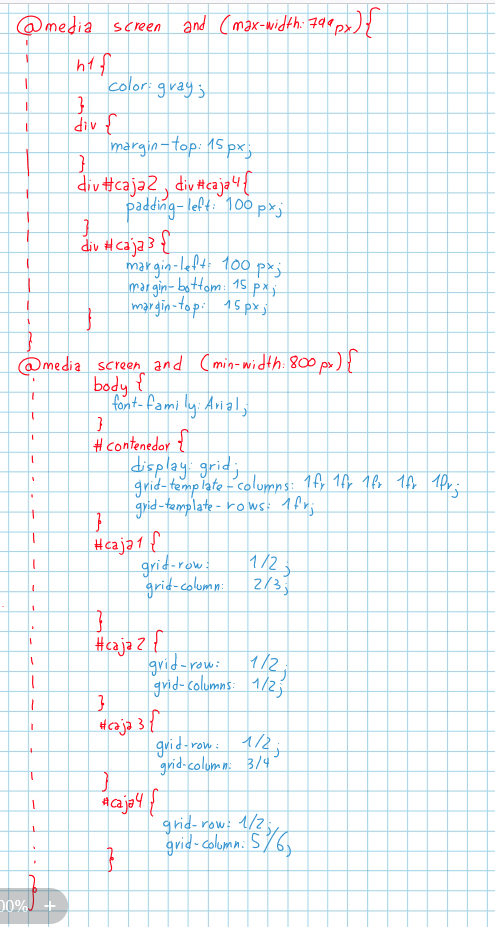 @media screen and (max-width: 799px){
h1{
color: gray;
}
div {
margin-top: 15px;
}
div#caja2, div#caja4{
padding-left: 100px;
}
div#caja3{
margin-left: 100 px;
margin-bottom: 15 px;
margin-top: 15px;
}
}
@media screen and (min-width: 800px){
body {
font-family: Arial;
}
#contenedor {
display: grid;
grid-template-columns: 1fr 1fr 1fr 1fr 1fr;
grid-template-rows: 1fr;
}
#caja1 {
grid-row: 1/2;
grid-column: 2/3;
}
#caja2 {
grid-row: 1/2;
grid-columns: 1/2;
}
#caja3{
grid-row: 1/2;
grid-column: 3/4
}
#caja4{
grid-row: 1/2;
grid-column: 5/6;
}
}
00% +